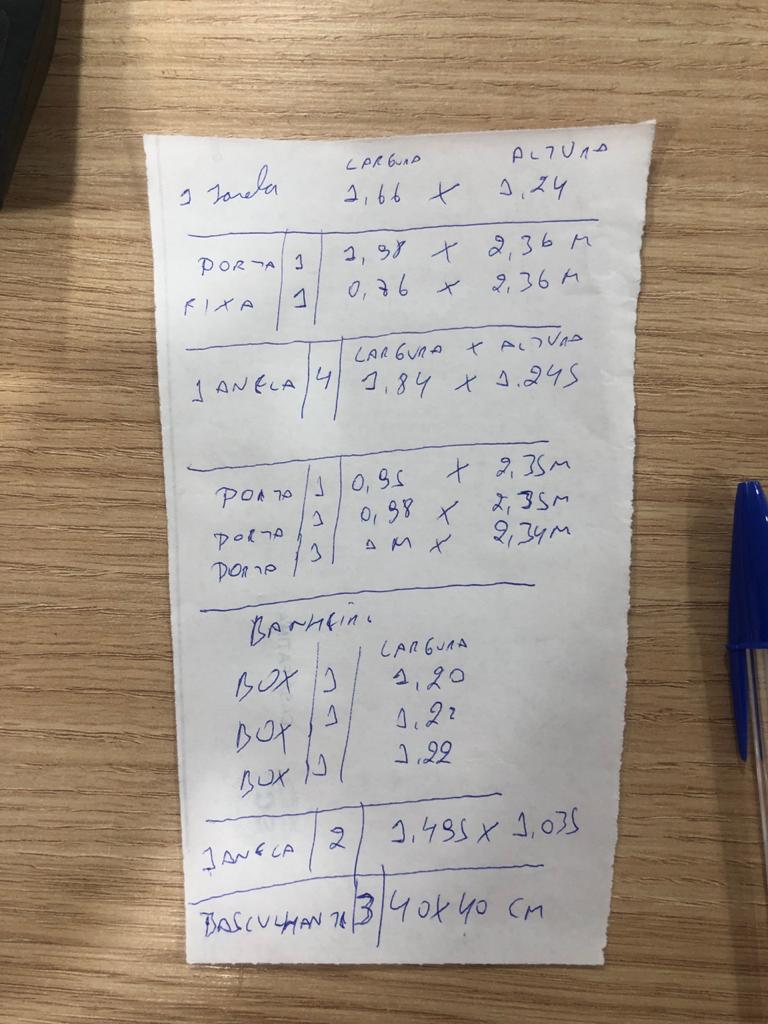 LARGURA ALTURA
1 Janela 1,66 X 1,24
PORTA 1 1,98 X 2,36 M
FIXA 1 0,76 X 2,36 M
LARGURA X ALTURA
JANELA 4 1,84 X 1.245
PORTA 1 0,95 X 2,35M
PORTA 1 0,98 X 2,35M
PORTA 1 1 M X 2,34M
BANHEIRO
LARGURA
BOX 1 1,20
BOX 1 1,22
BOX 1 1,22
JANELA 2 1,495 X 1,035
BASCULHANTE 3 40X40 CM